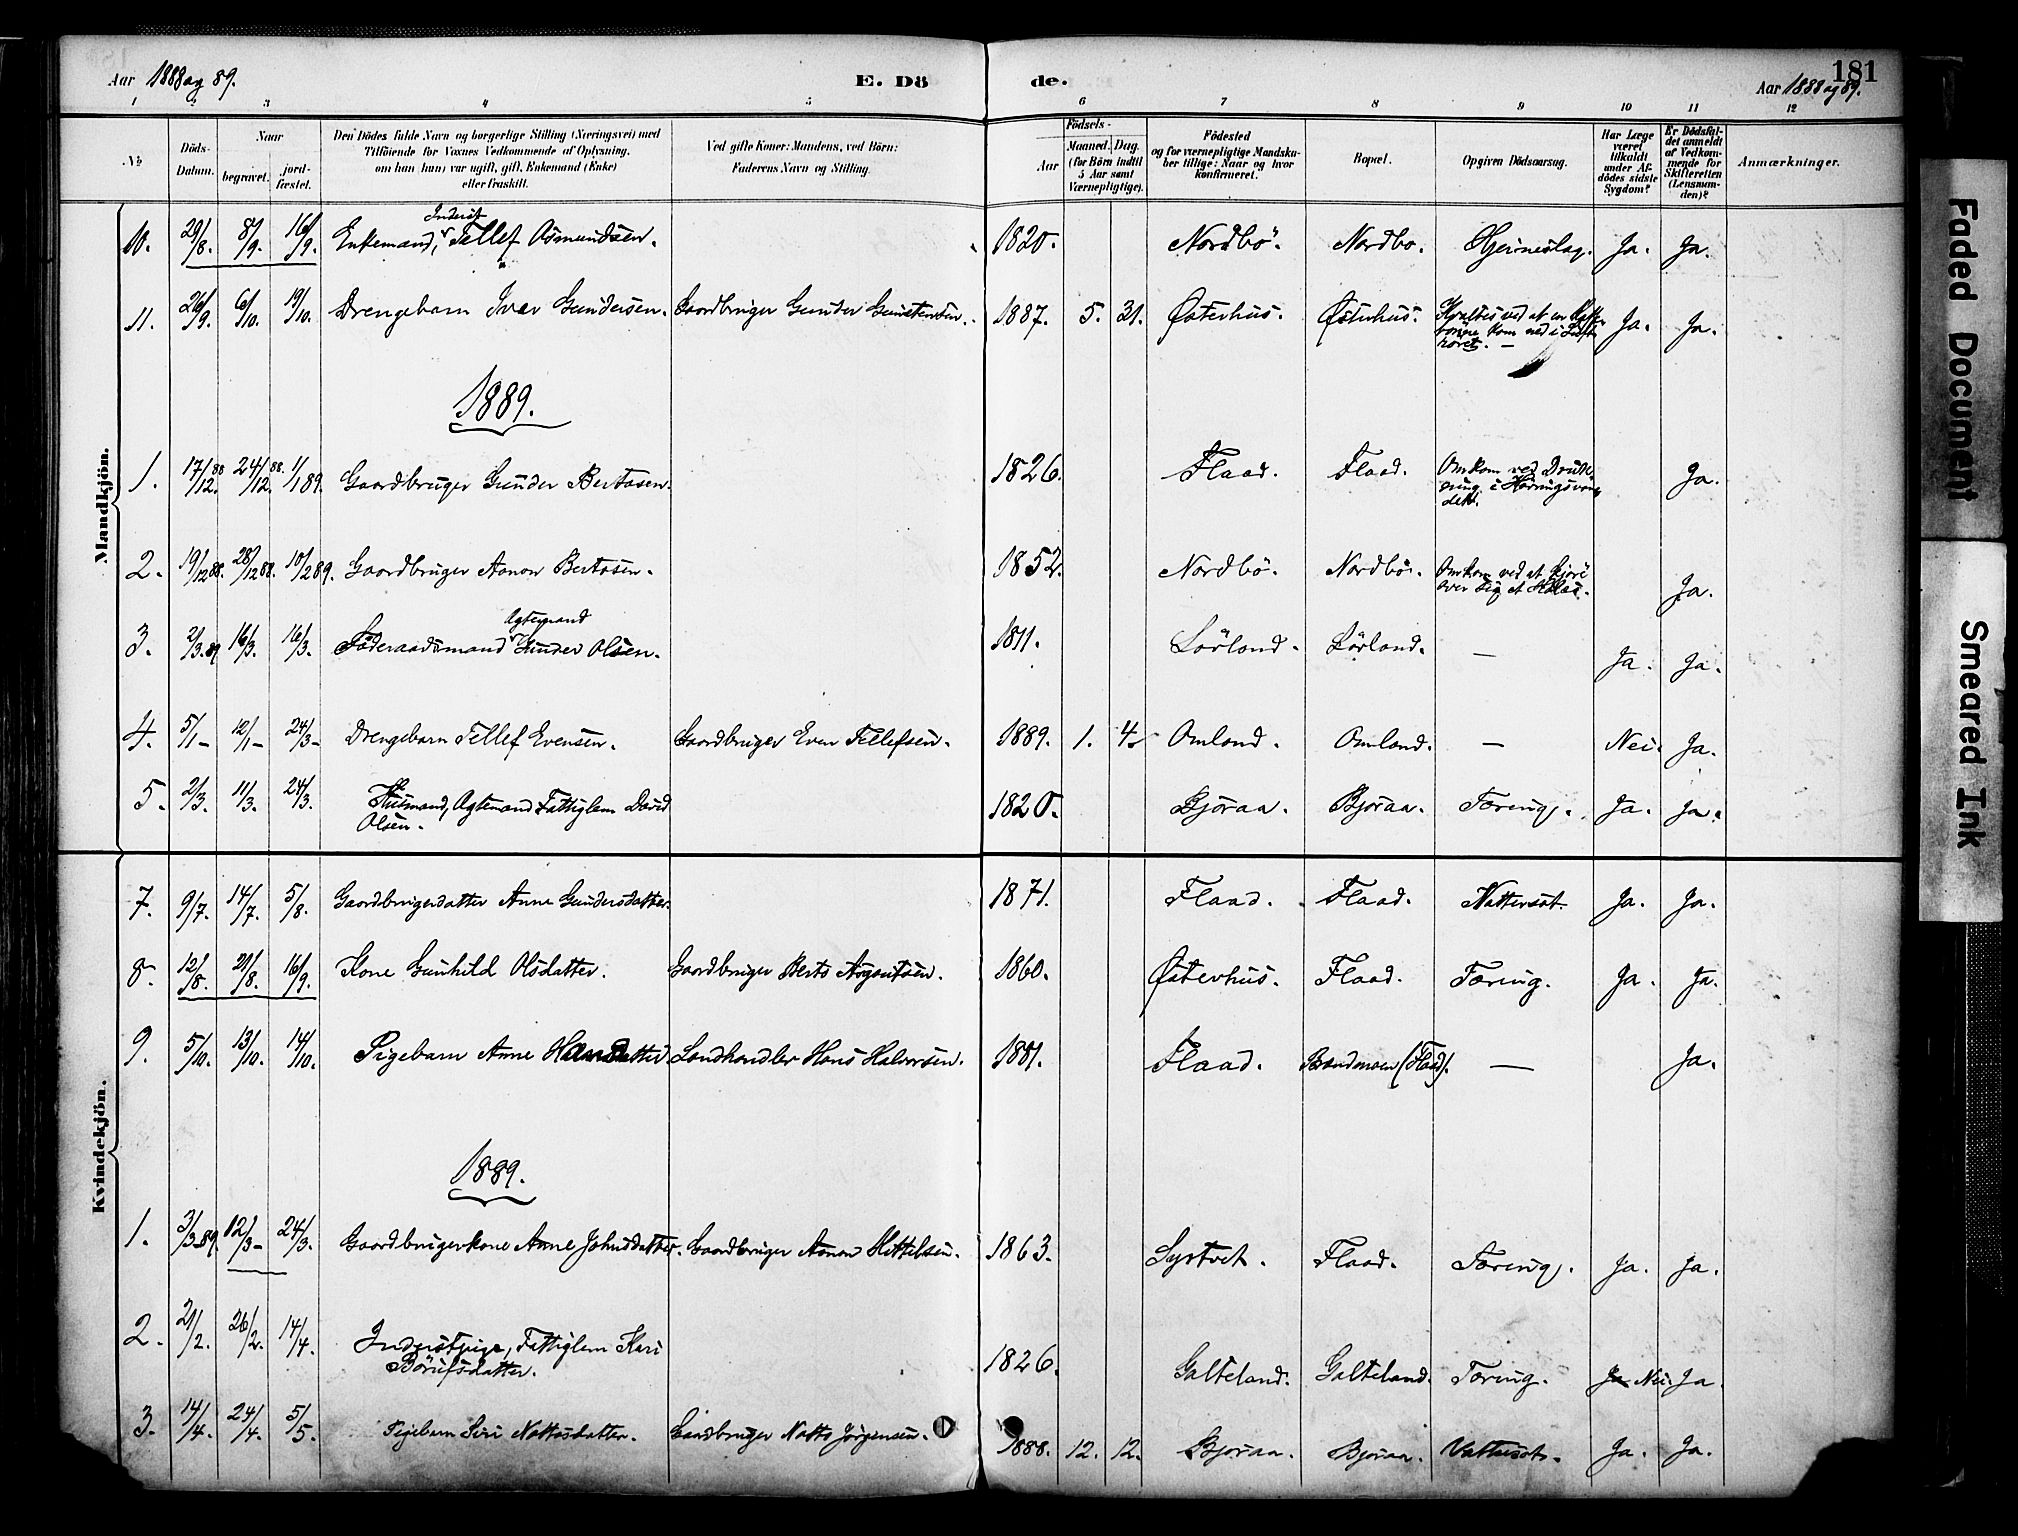 Aar 1888 og 89.
E. Dö de.
181
Aar 1888 og 89.
1 2 3 4 5 6 7 8 9 10 11 12
No
Döds-Datum.
Naar
begravet.
jord-fæstet.
Den Dödes fulde Navn og borgerlige Stilling (Næringsvei) med
Tilföiende for Voxnes Vedkommende af Oplysning,
om han (hun) var ugift, gift, Enkemand (Enke)
eller fraskilt.
Ved gifte Koner: Mandens, ved Börn:
Faderens Navn og Stilling.
Födsels-
Aar
Maaned. Dag.
(for Börn indtil
5 Aar samt
Værnepligtige).
Födested
og for værnepligtige Mandska-
ber tillige: Naar og hvor
konfirmeret.
Bopæl.
Opgiven Dödsaarsag.
Har Læge
været
tilkaldt
under Af-
dödes sidste
Sygdom?
Er Dödsfal-
det anmeldt
af Vedkom-
mende for
Skifteretten
(Lensman-
den)?
Anmærkninger.
Mandkjön.
10. 29/8. 8/9. 16/9. Enkemand, Inderst Tellef Osmundsen. 1820. Nordbö. Nordbo. Hjerneslag. Ja. Ja.
11. 26/9. 6/10. 19/10. Drengebarn Ivar Gundersen. Gaardbruger Gunder Gunstensen. 1887. 5. 31. Østerhus. Østerhus. Kvaltes ved at en
kom ned i Luft-
röret. — Ja. Ja.
1889.
1. 17/12 88. 24/12 88. 1/1 89. Gaardbruger Gunder Bertosen. 1826. Flaad. Flaad. Omkom ved Drukk-
ning i
Ja.
2. 19/12 88. 28/12 88. 10/2 89. Gaardbruger Aanon Bertosen. 1852. Nordbö. Nordbö. Omkom ved at kjöre
over sig et Ja.
3. 2/3 89 16/3. 16/3. Föderaadsmand, Agtemand Gunder Olsen. 1811. Lörland. Lörland. — Ja. Ja.
4. 5/1- 12/1- 24/3- Drengebarn Tellef Evensen. Gaardbruger Even Tellefsen. 1889. 1. 4. Omland. Omland. — Nei. Ja.
5. 2/3. 11/3. 24/3. Husmand, Agtemand Fattiglem David
Olsen. 1820. Bjoraa. Bjoraa. Tæring. Ja. Ja.
Kvindekjön.
7. 9/7. 14/7. 5/8. Gaardbrugerdatter Anne Gundersdatter. 1871. Flaad. Flaad. Nattersot. Ja. Ja.
8. 12/8. 21/8. 16/9. Kone Gunhild Olsdatter. Gaardbruger Berto Asgautsen. 1860. Østerhus. Flaad. Tæring. Ja. Ja.
9. 5/10. 13/10. 14/10. Pigebarn Anne Hansdatter. Landhandler Hans Halvorsen. 1881. Flaad. (Flaad). — Ja.
1889.
1. 3/3 89. 12/3- 24/3. Gaardbrugerkone Anne Johnsdatter. Gaardbruger Aanon Kittelsen. 1863. Syrtveit. Flaad. Tæring. Ja. Ja.
2. 21/2. 26/2. 14/4. Inderstpige, Fattiglem Kari
Börufsdatter. 1826. Galteland. Galteland. Tæring. Ja Nei. Ja
3. 14/4. 24/4. 5/5. Pigebarn Siri Nottosdatter. Gaardbruger Notto Jörgensen. 1888. 12. 12. Bjoraa. Bjoraa. Vattersot. Ja. Ja.
Faded Document
Smeared Ink